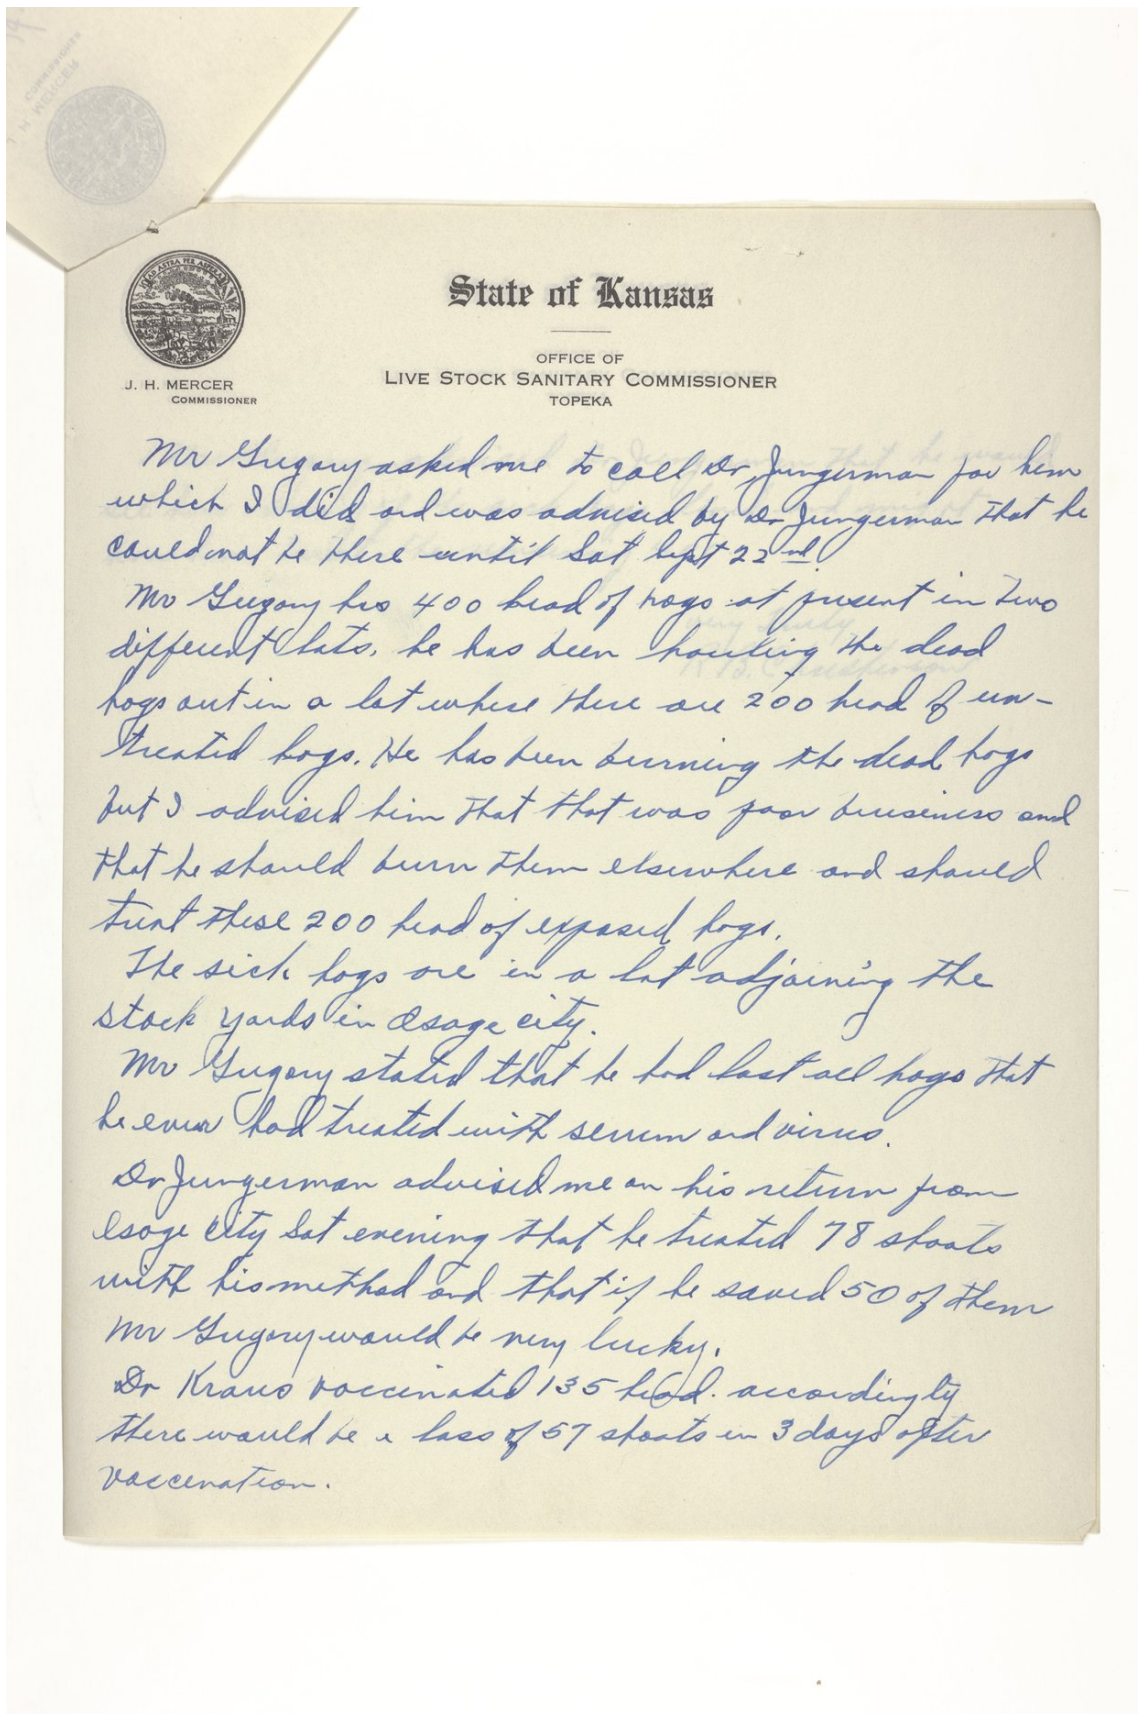 COMMISSIONER
MERCER
AD ASTRA PER ASPERA
State of Kansas
OFFICE OF
LIVE STOCK SANITARY COMMISSIONER
TOPEKA
J. H. MERCER
COMMISSIONER
Mr Gregory asked me to call Dr. Jungerman for him
which I did and was advised by Dr Jungerman that he
could not be there until Sat Sept 22nd
Mr Gregory has 400 head of hogs at present in two
different lots, he has been hauling the dead
hogs out in a lot where there are 200 head of un-
treated hogs. He has been burning the dead hogs
but I advised him that that was poor business and
that he should burn them elsewhere and should
treat these 200 head of exposed hogs.
The sick hogs are in a lot adjoining the
stock yards in Osage city.
Mr Gregory stated that he had lost all hogs that
he ever had treated with serum and virus.
Dr Jungerman advised me on his return from
Osage City Sat evening that he treated 78 shoats
with his method and that if he saved 50 of them
Mr Gregory would be very lucky.
Dr Kraus vaccinated 135 head. accordingly
there would be a loss of 57 shoats in 3 days after
vaccination.